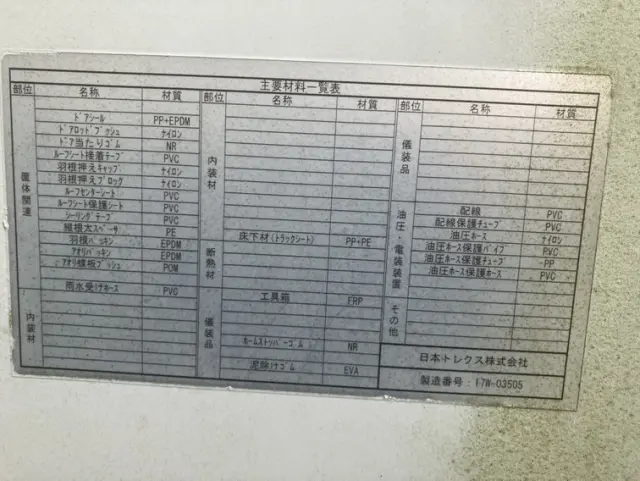 主要材料一覧表
部位 名称 材質 部位 名称 材質 部位 名称 材質
筐体関連
ドアシール PP+EPDM
ドアロッドブッシュ ナイロン
ドア当たりゴム NR
ルーフシート接着テープ PVC
羽根押えキャップ ナイロン
羽根押えブロック ナイロン
ルーフセンターシート PVC
ルーフシート保護シート PVC
シーリングテープ PVC
屋根太スペーサ PE
羽根パッキン EPDM
アオリパッキン EPDM
アオリ蝶板ブッシュ POM
雨水受けホース PVC
内装材
内装材
断熱材
床下材(トラックシート) PP+PE
儀装品
工具箱 FRP
ホームストッパーゴム NR
泥除けゴム EVA
儀装品
油圧・電装装置
配線 PVC
配線保護チューブ PVC
油圧ホース ナイロン
油圧ホース保護パイプ PVC
油圧ホース保護チューブ PP
油圧ホース保護ホース PVC
その他
日本トレクス株式会社
製造番号:17W-03505